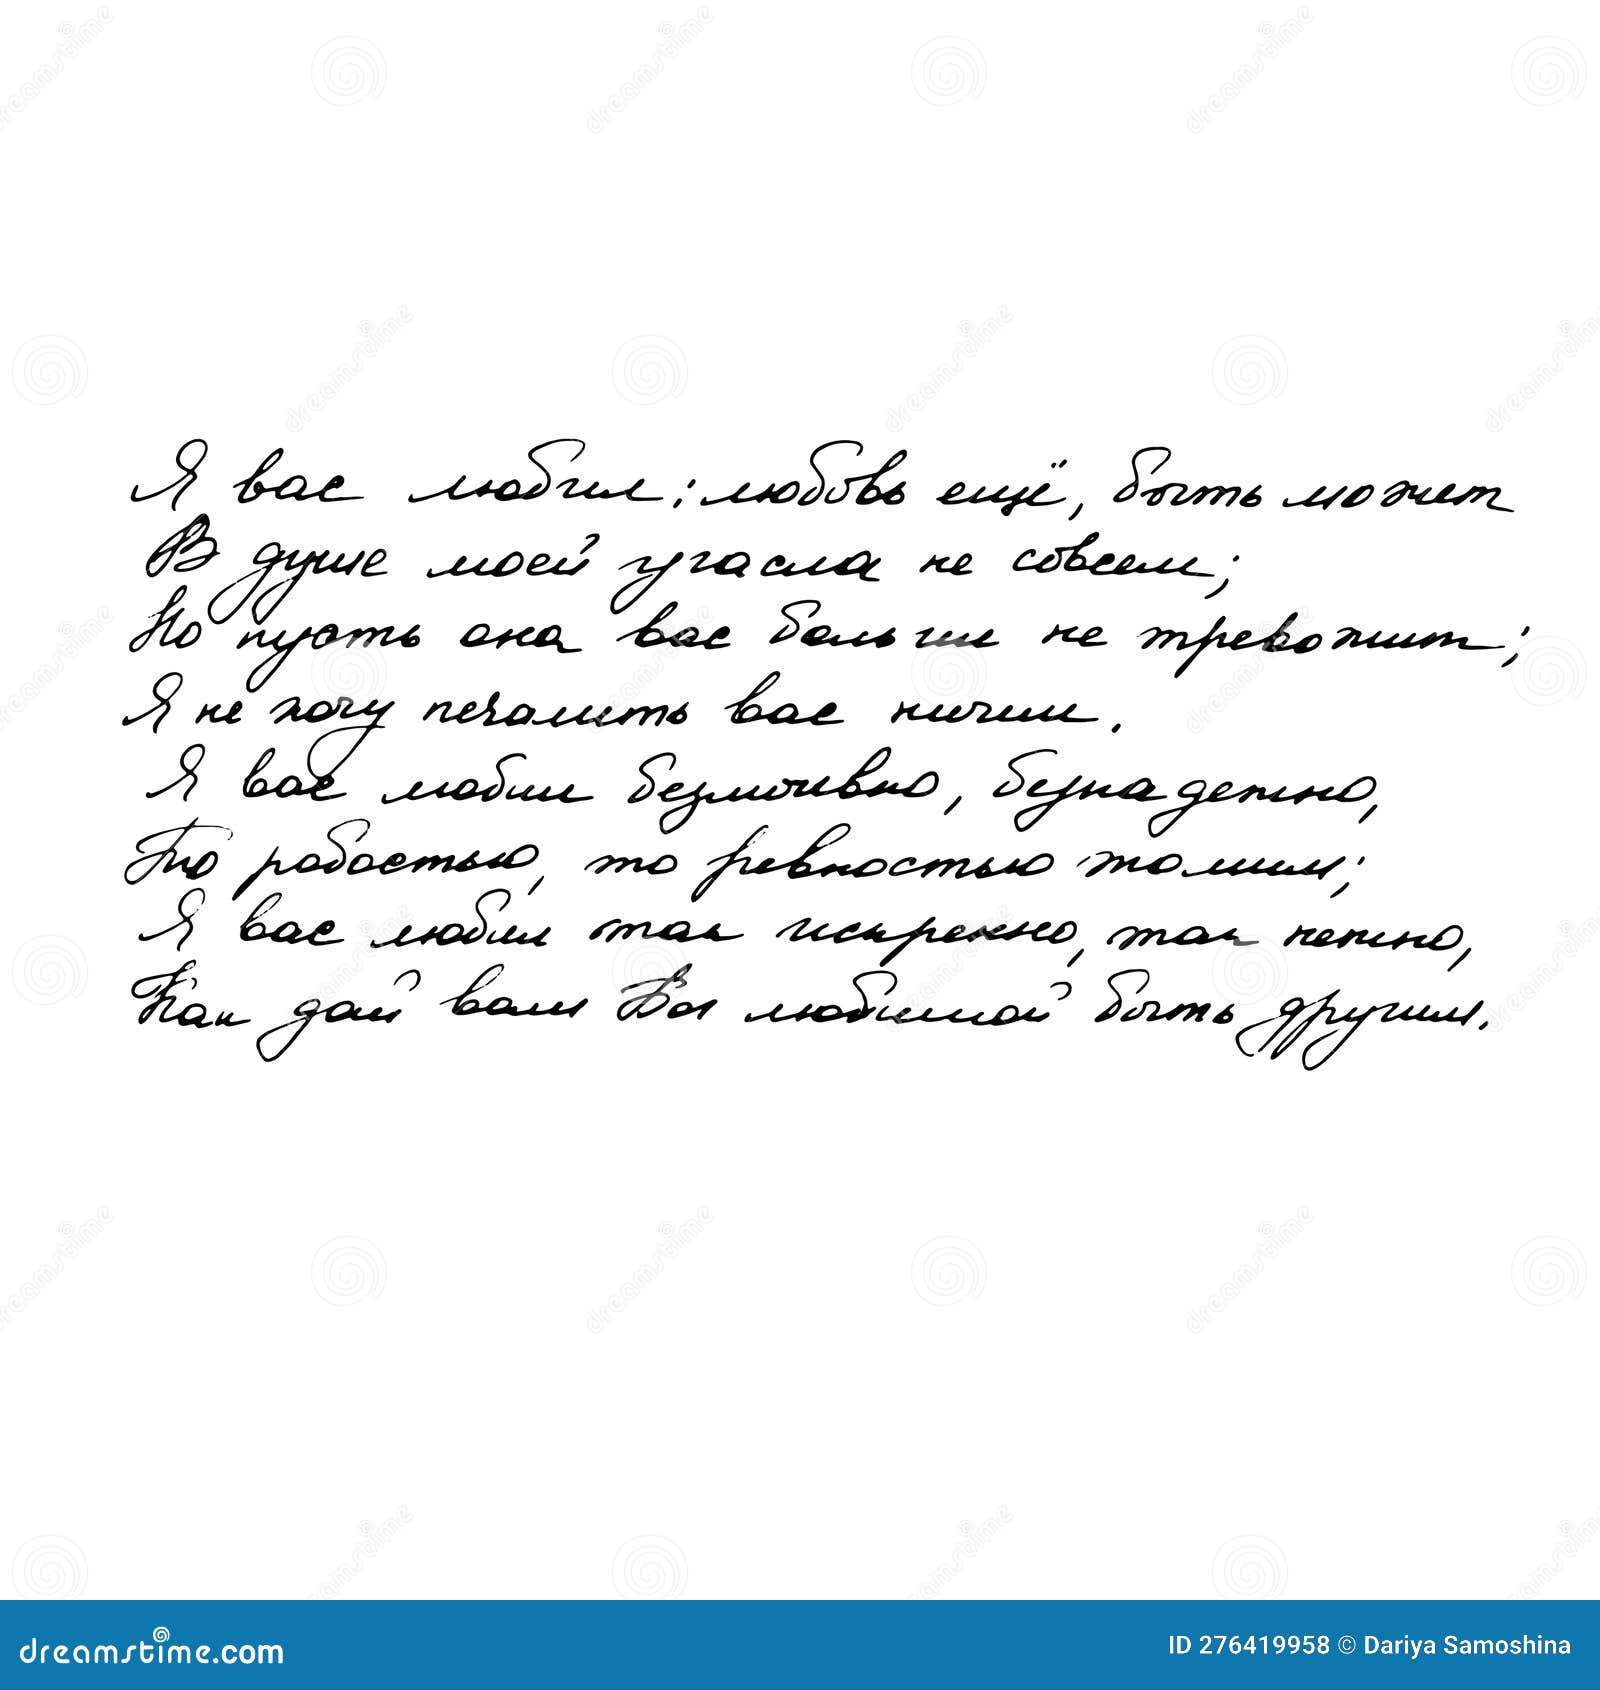 Я вас любил: любовь ещё, быть может
В душе моей угасла не совсем;
Но пусть она вас больше не тревожит;
Я не хочу печалить вас ничем.
Я вас любил безмолвно, безнадежно,
То робостью, то ревностью томим;
Я вас любил так искренно, так нежно,
Как дай вам Бог любимой быть другим.
dreamstime.com
ID 276419958 © Dariya Samoshina